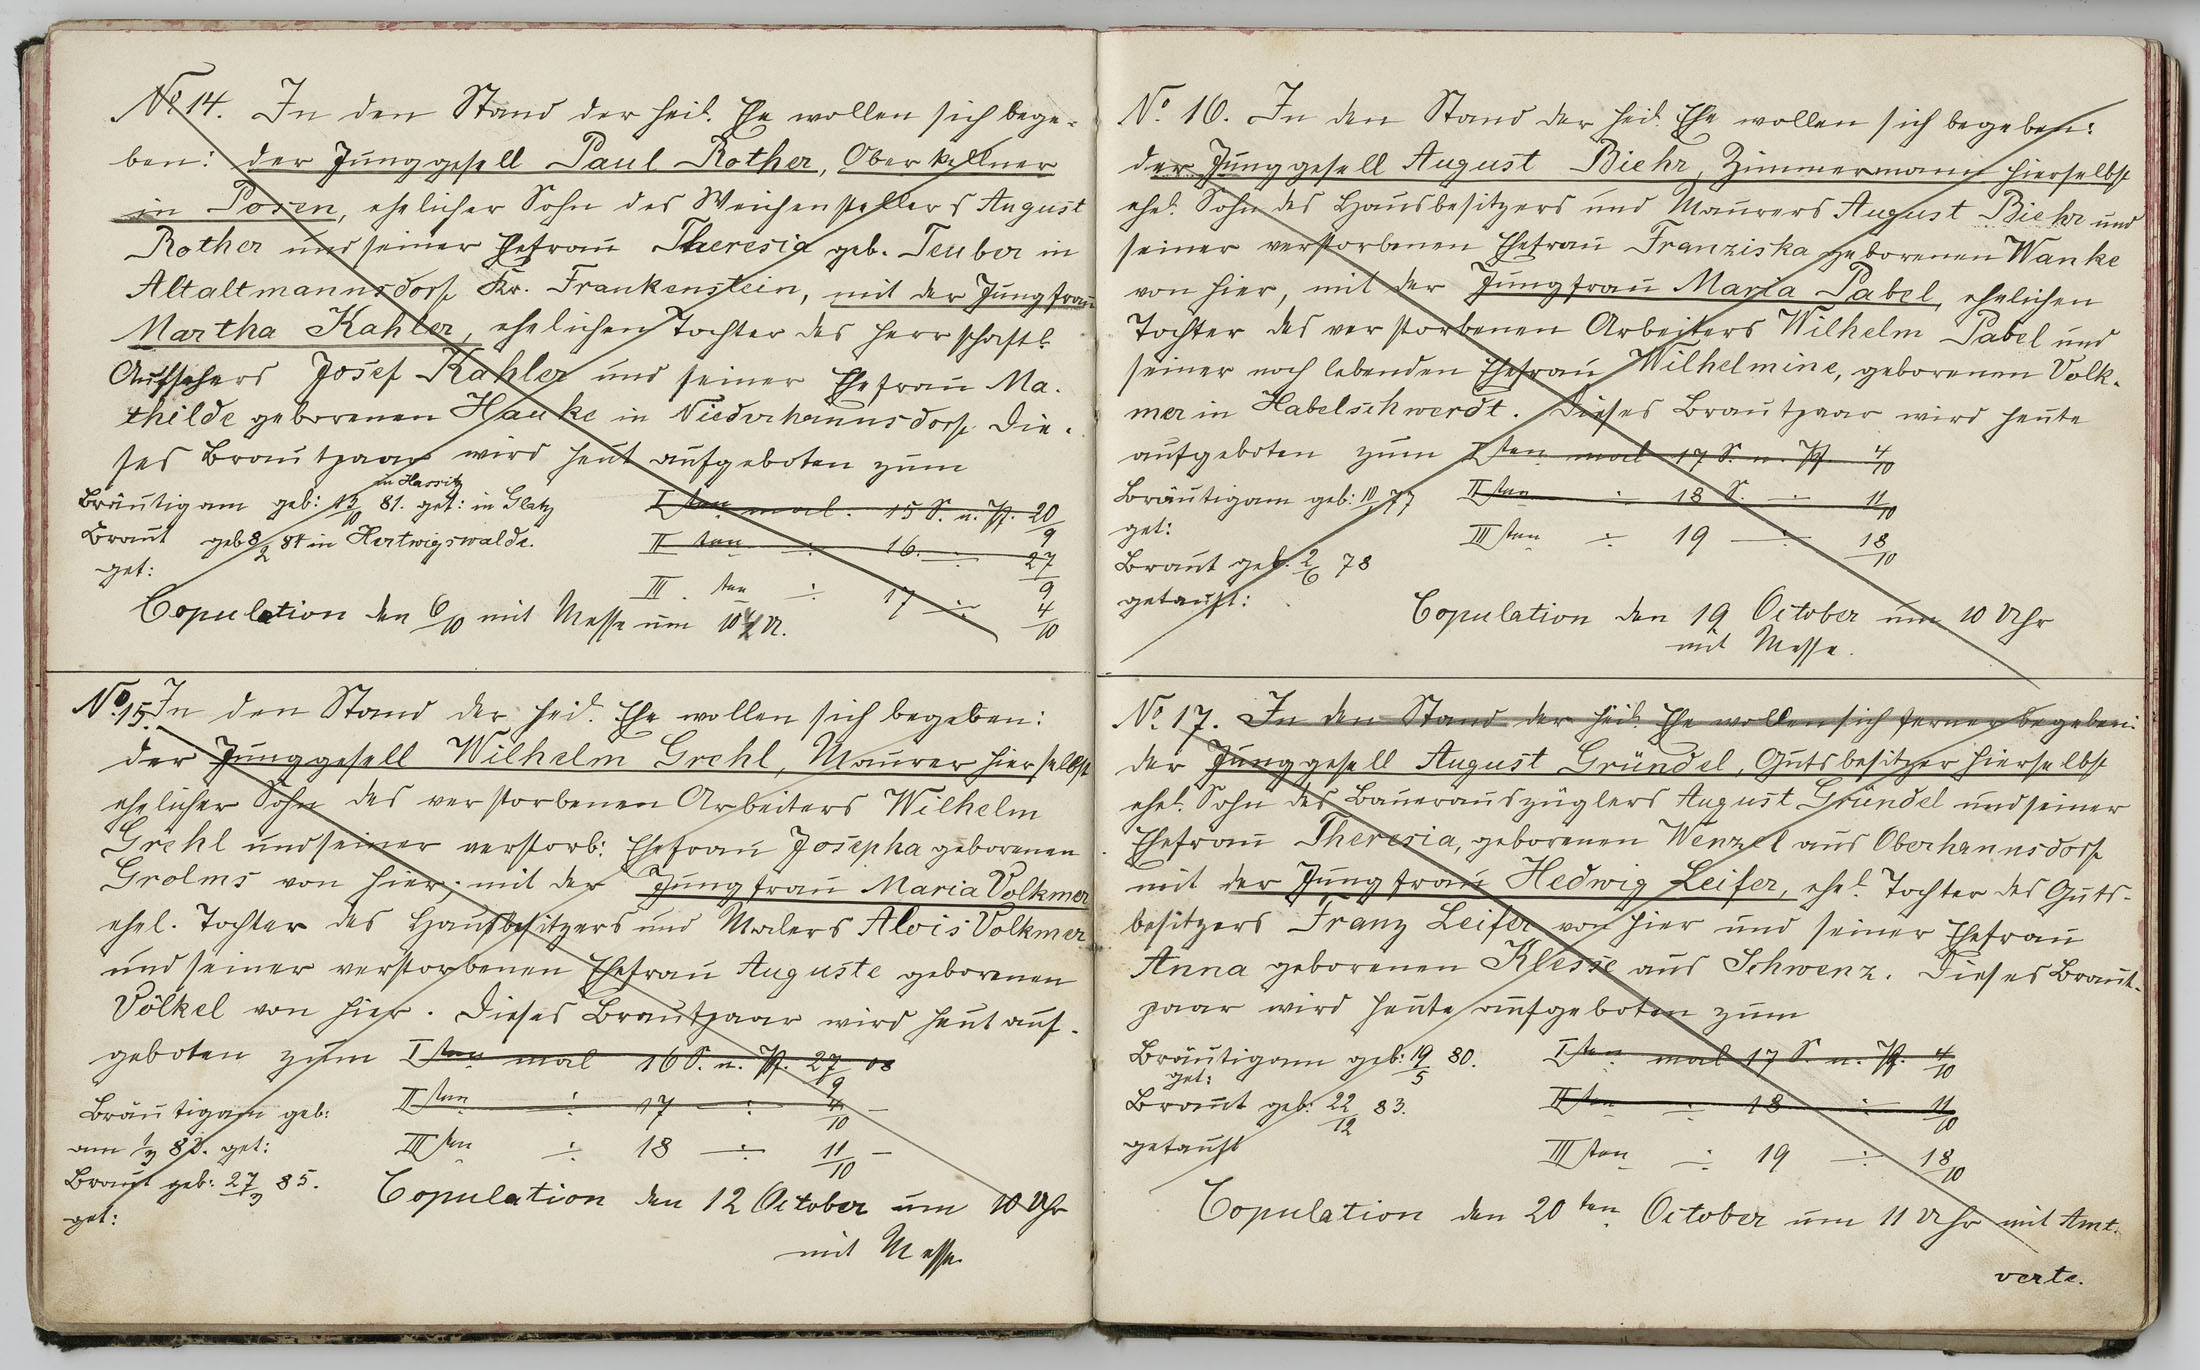 No 14. In den Stand der heil. Ehe wollen sich bege-
ben: der Junggesell Paul Rother, Oberkellner
in Posen, ehelicher Sohn des Weichenstellers August
Rother und seiner Ehefrau Theresia geb. Teuber in
Altaltmannsdorf Kr. Frankenstein, mit der Jungfrau
Martha Kahler, ehelichen Tochter des herrschaftl.
Aufsehers Josef Kahler und seiner Ehefrau Ma-
thilde geborenen Hauke in Niederhannsdorf. Die-
ses Brautpaar wird heut aufgeboten zum
in Hassitz
Bräutigam geb: 13/10 81. get: in Glatz
Iten mal. 15 S. n. Pf. 20/9
Braut geb 8/2 84 in Hertwigswalde.
II ten ÷ 16. ÷ 27/9
get:
III. ten ÷ 17 ÷ 4/10
Copulation den 6/10 mit Messe um 10 U.
No 15. In den Stand der heil. Ehe wollen sich begeben:
der Junggesell Wilhelm Grehl, Maurer hierselbst
ehelicher Sohn des verstorbenen Arbeiters Wilhelm
Grehl und seiner verstorb: Ehefrau Josepha geborenen
Grolms von hier, mit der Jungfrau Maria Volkmer
ehel. Tochter des Hausbesitzers und Malers Alois Volkmer
und seiner verstorbenen Ehefrau Auguste geborenen
Völkel von hier. Dieses Brautpaar wird heut auf-
geboten zum Iten mal 16 S. n. Pf. 27/9 08
IIten ÷ 17 ÷ 4/10 –
Bräutigam geb:
am 1/3 83. get:
IIIten ÷ 18 ÷ 11/10 –
Braut geb: 27/3 85.
get:
Copulation den 12 October um 10 Uhr
mit Messe.
No. 16. In den Stand der heil. Ehe wollen sich begeben:
der Junggesell August Biehr, Zimmermann hierselbst
ehel. Sohn des Hausbesitzers und Maurers August Biehr und
seiner verstorbenen Ehefrau Franziska geborenen Wanke
von hier, mit der Jungfrau Maria Pabel, ehelichen
Tochter des verstorbenen Arbeiters Wilhelm Pabel und
seiner noch lebenden Ehefrau Wilhelmine, geborenen Volk-
mer in Habelschwerdt. Dieses Brautpaar wird heute
aufgeboten zum Iten mal 17 S. n. Pf. 4/10
Bräutigam geb: 10/1 77
IIten ÷ 18 S. ÷ 11/10
get:
IIIten ÷ 19 ÷ 18/10
Braut geb. 2/6 78
getauft:
Copulation den 19 October um 10 Uhr
mit Messe.
No 17. In den Stand der heil. Ehe wollen sich ferner begeben:
der Junggesell August Gründel, Gutsbesitzer hierselbst
ehel. Sohn des Bauerauszüglers August Gründel und seiner
Ehefrau Theresia, geborenen Wenzel aus Oberhannsdorf
mit der Jungfrau Hedwig Leifer, ehel. Tochter des Guts-
besitzers Franz Leifer von hier und seiner Ehefrau
Anna geborenen Klesse aus Schwenz. Dieses Braut-
paar wird heute aufgeboten zum
Bräutigam geb: 19/5 80.
Iten mal 17 S. n. Pf. 4/10
get:
Braut geb: 22/12 83.
IIten ÷ 18 ÷ 11/10
getauft
IIIten ÷ 19 ÷ 18/10
Copulation den 20ten October um 11 Uhr mit Amt.
verte.